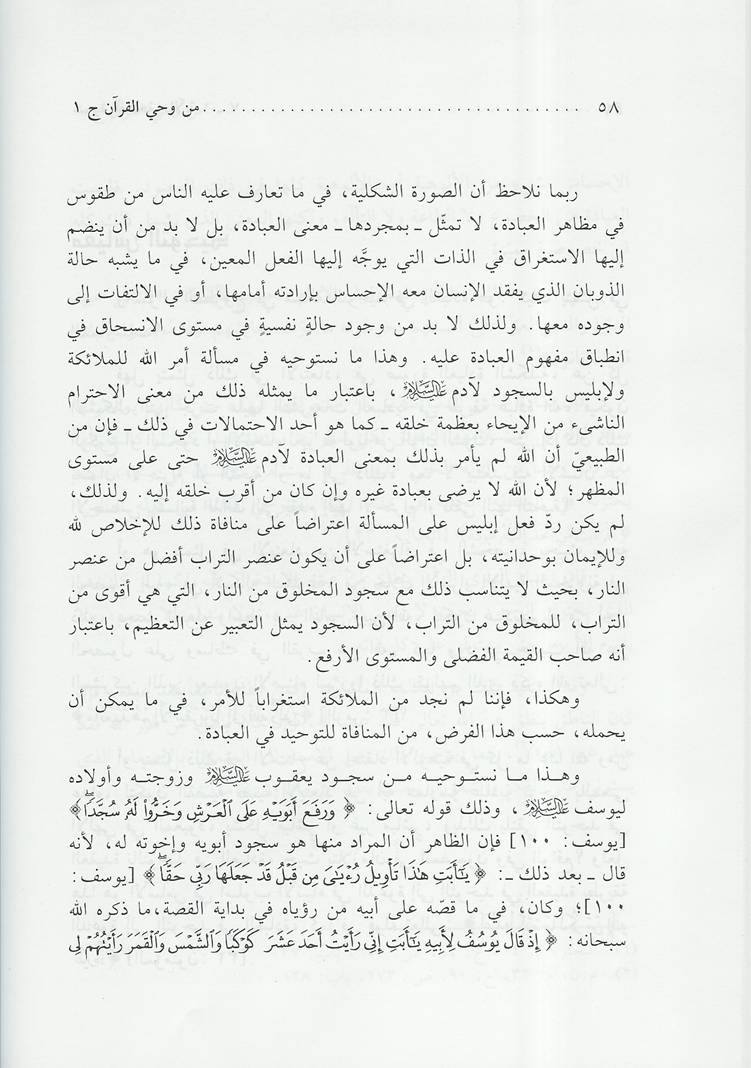 ٥٨ ...................................... من وحي القرآن ج ١
ربما نلاحظ أن الصورة الشكلية، في ما تعارف عليه الناس من طقوس
في مظاهر العبادة، لا تمثّل ـ بمجردها ـ معنى العبادة، بل لا بد من أن ينضم
إليها الاستغراق في الذات التي يوجَّه إليها الفعل المعين، في ما يشبه حالة
الذوبان الذي يفقد الإنسان معه الإحساس بإرادته أمامها، أو في الالتفات إلى
وجوده معها. ولذلك لا بد من وجود حالةٍ نفسيةٍ في مستوى الانسحاق في
انطباق مفهوم العبادة عليه. وهذا ما نستوحيه في مسألة أمر الله للملائكة
ولإبليس بالسجود لآدم عليه السلام، باعتبار ما يمثله ذلك من معنى الاحترام
الناشىء من الإيحاء بعظمة خلقه ـ كما هو أحد الاحتمالات في ذلك ـ فإن من
الطبيعيّ أن الله لم يأمر بذلك بمعنى العبادة لآدم عليه السلام حتى على مستوى
المظهر؛ لأن الله لا يرضى بعبادة غيره وإن كان من أقرب خلقه إليه. ولذلك،
لم يكن ردّ فعل إبليس على المسألة اعتراضاً على منافاة ذلك للإخلاص لله
وللإيمان بوحدانيته، بل اعتراضاً على أن يكون عنصر التراب أفضل من عنصر
النار، بحيث لا يتناسب ذلك مع سجود المخلوق من النار، التي هي أقوى من
التراب، للمخلوق من التراب، لأن السجود يمثل التعبير عن التعظيم، باعتبار
أنه صاحب القيمة الفضلى والمستوى الأرفع.
وهكذا، فإننا لم نجد من الملائكة استغراباً للأمر، في ما يمكن أن
يحمله، حسب هذا الفرض، من المنافاة للتوحيد في العبادة.
وهذا ما نستوحيه من سجود يعقوب عليه السلام وزوجته وأولاده
ليوسف عليه السلام، وذلك قوله تعالى: ﴿ وَرَفَعَ أَبَوَيْهِ عَلَى الْعَرْشِ وَخَرُّوا لَهُ سُجَّدًا ﴾
[يوسف: ١٠٠] فإن الظاهر أن المراد منها هو سجود أبويه وإخوته له، لأنه
قال ـ بعد ذلك ـ: ﴿ يَٰٓأَبَتِ هَٰذَا تَأْوِيلُ رُءْيَٰىَ مِن قَبْلُ قَدْ جَعَلَهَا رَبِّى حَقًّا ﴾ [يوسف:
١٠٠]؛ وكان، في ما قصّه على أبيه من رؤياه في بداية القصة،ما ذكره الله
سبحانه: ﴿ إِذْ قَالَ يُوسُفُ لِأَبِيهِ يَٰٓأَبَتِ إِنِّى رَأَيْتُ أَحَدَ عَشَرَ كَوْكَبًا وَالشَّمْسَ وَالْقَمَرَ رَأَيْتُهُمْ لِى